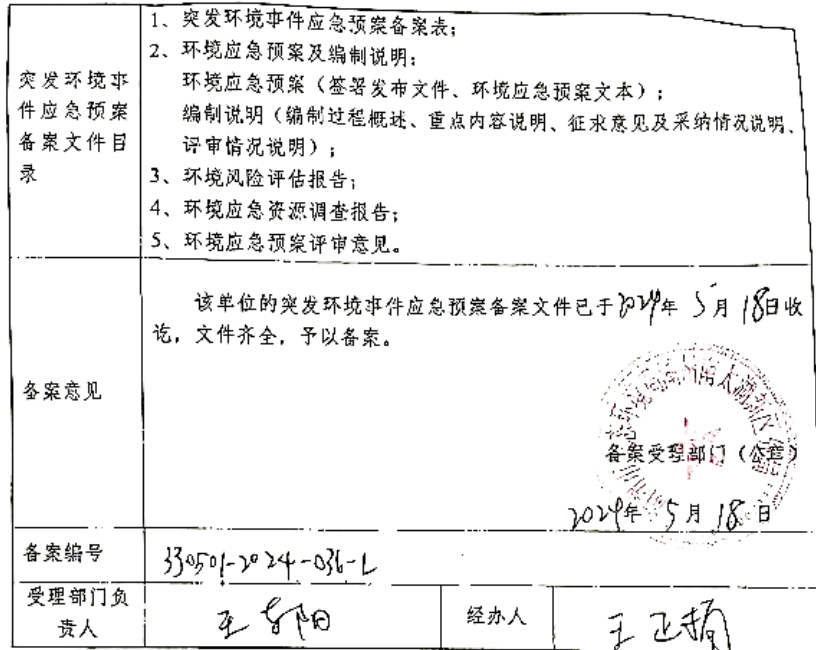 突发环境事件应急预案备案文件目录
1、突发环境事件应急预案备案表；
2、环境应急预案及编制说明；
环境应急预案（签署发布文件、环境应急预案文本）；
编制说明（编制过程概述、重点内容说明、征求意见及采纳情况说明、
评审情况说明）；
3、环境风险评估报告；
4、环境应急资源调查报告；
5、环境应急预案评审意见。
备案意见
该单位的突发环境事件应急预案备案文件已于2024年 5月 18日收
讫，文件齐全，予以备案。
备案受理部门（公章）
2024年 5月 18日
备案编号
330501-2024-036-L
受理部门负
责人
王
经办人
王正